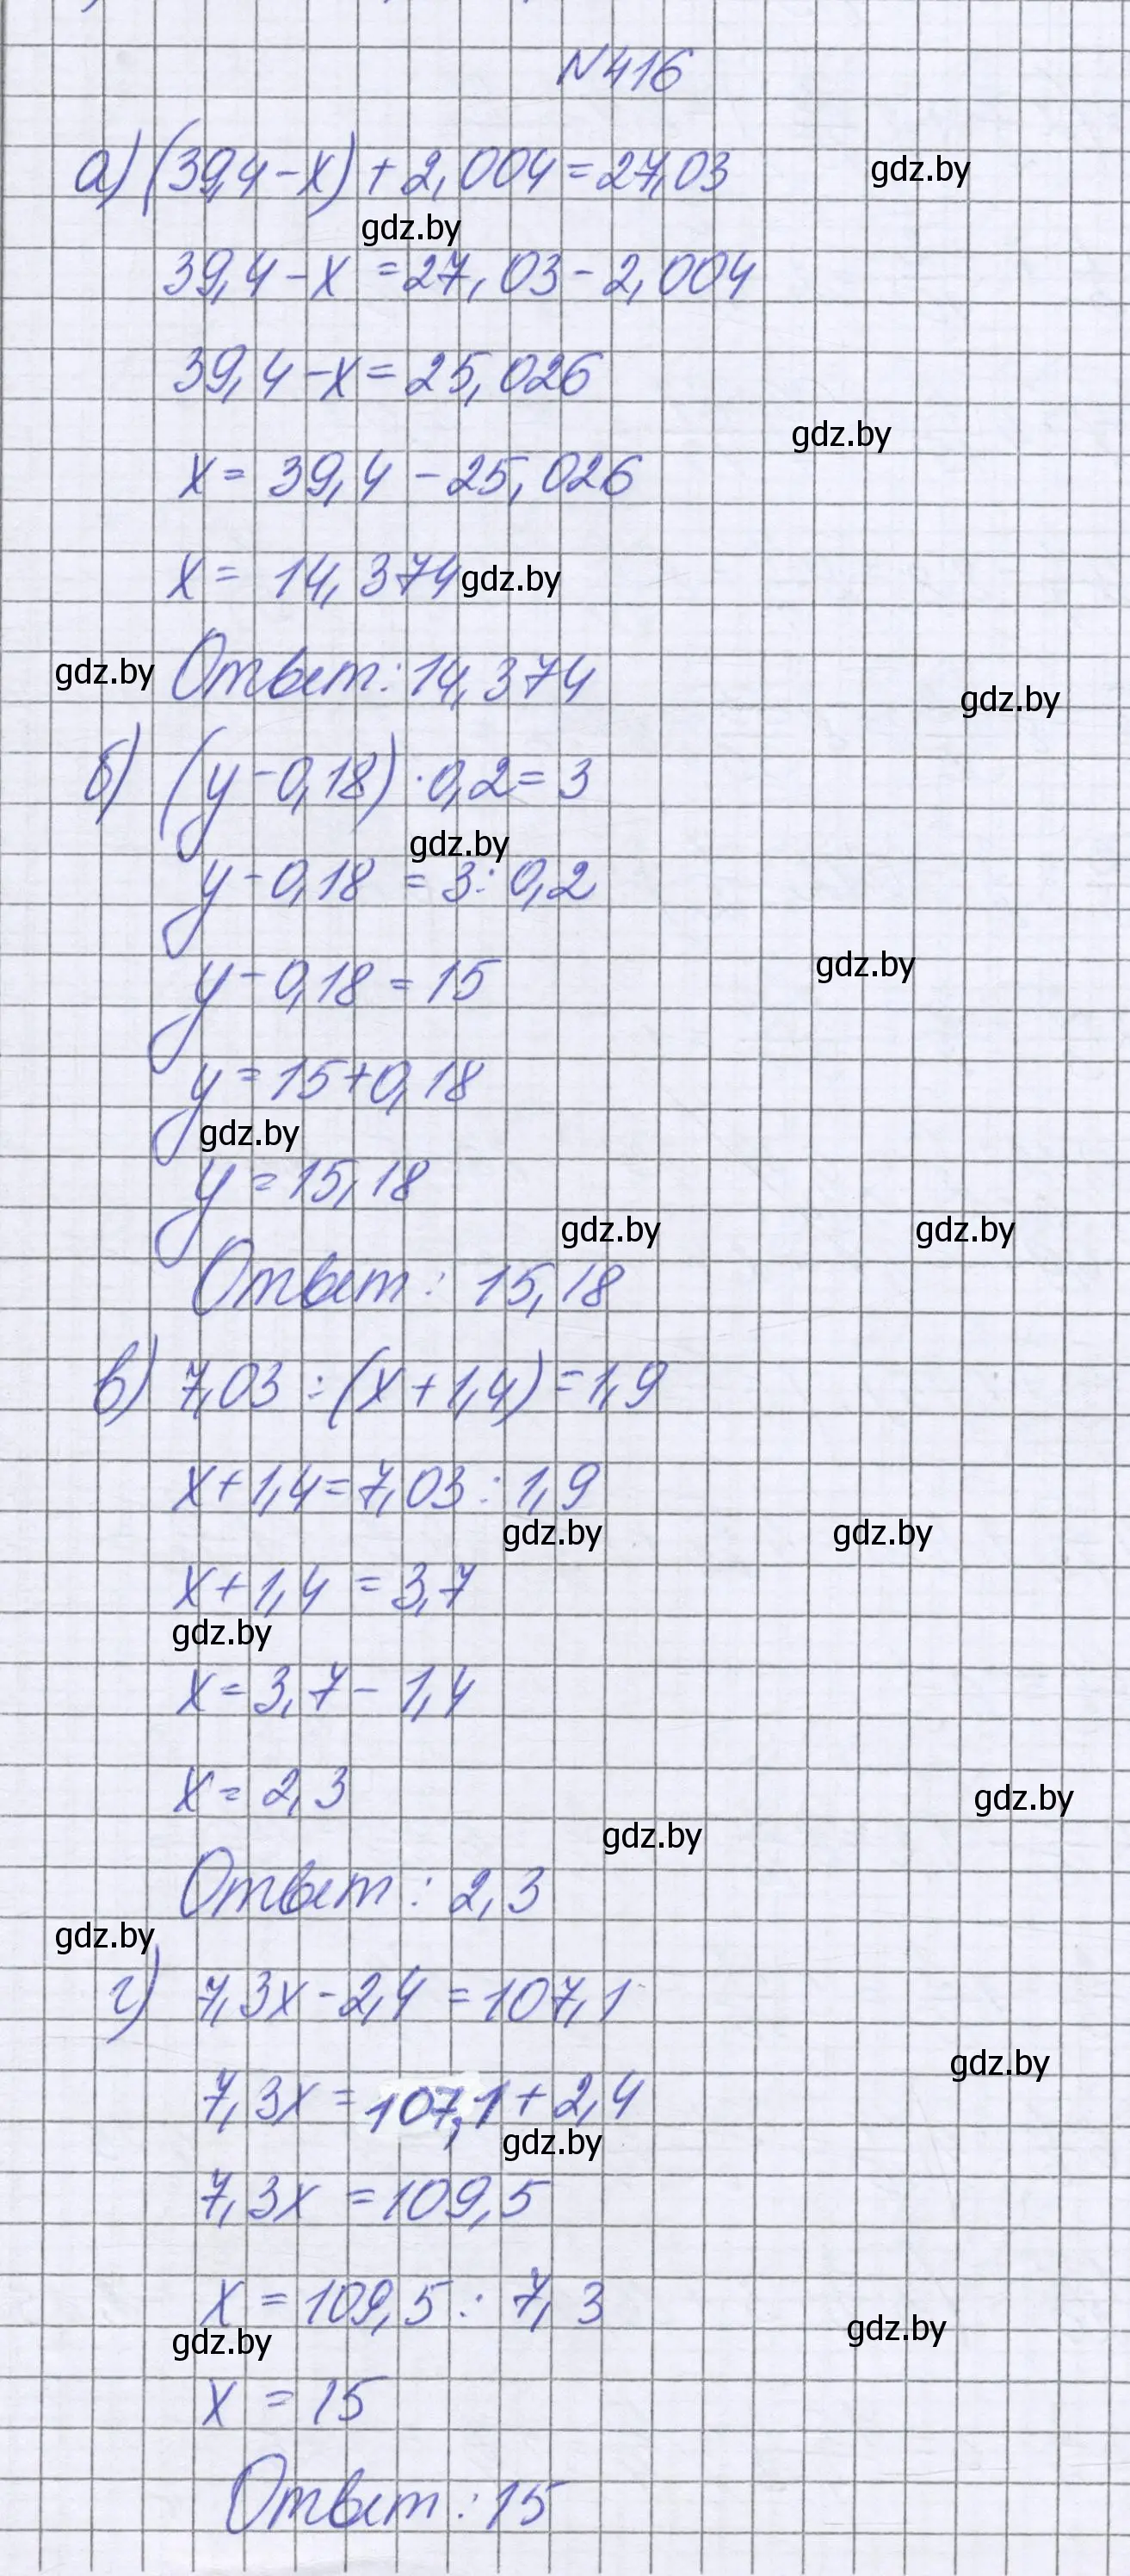 №416
а) (39,4-x)+2,004=27,03
gdz.by
gdz.by
39,4-x=27,03-2,004
39,4-x=25,026
gdz.by
x=39,4-25,026
x=14,374
gdz.by
gdz.by
Ответ: 14,374
gdz.by
б) (y-0,18)·0,2=3
gdz.by
y-0,18=3:0,2
gdz.by
y-0,18=15
y=15+0,18
gdz.by
y=15,18
gdz.by
gdz.by
Ответ: 15,18
в) 7,03:(x+1,4)=1,9
x+1,4=7,03:1,9
gdz.by
gdz.by
x+1,4=3,7
gdz.by
x=3,7-1,4
x=2,3
gdz.by
gdz.by
Ответ: 2,3
gdz.by
г) 7,3x-2,4=107,1
gdz.by
7,3x=107,1+2,4
gdz.by
7,3x=109,5
x=109,5:7,3
gdz.by
gdz.by
x=15
Ответ: 15